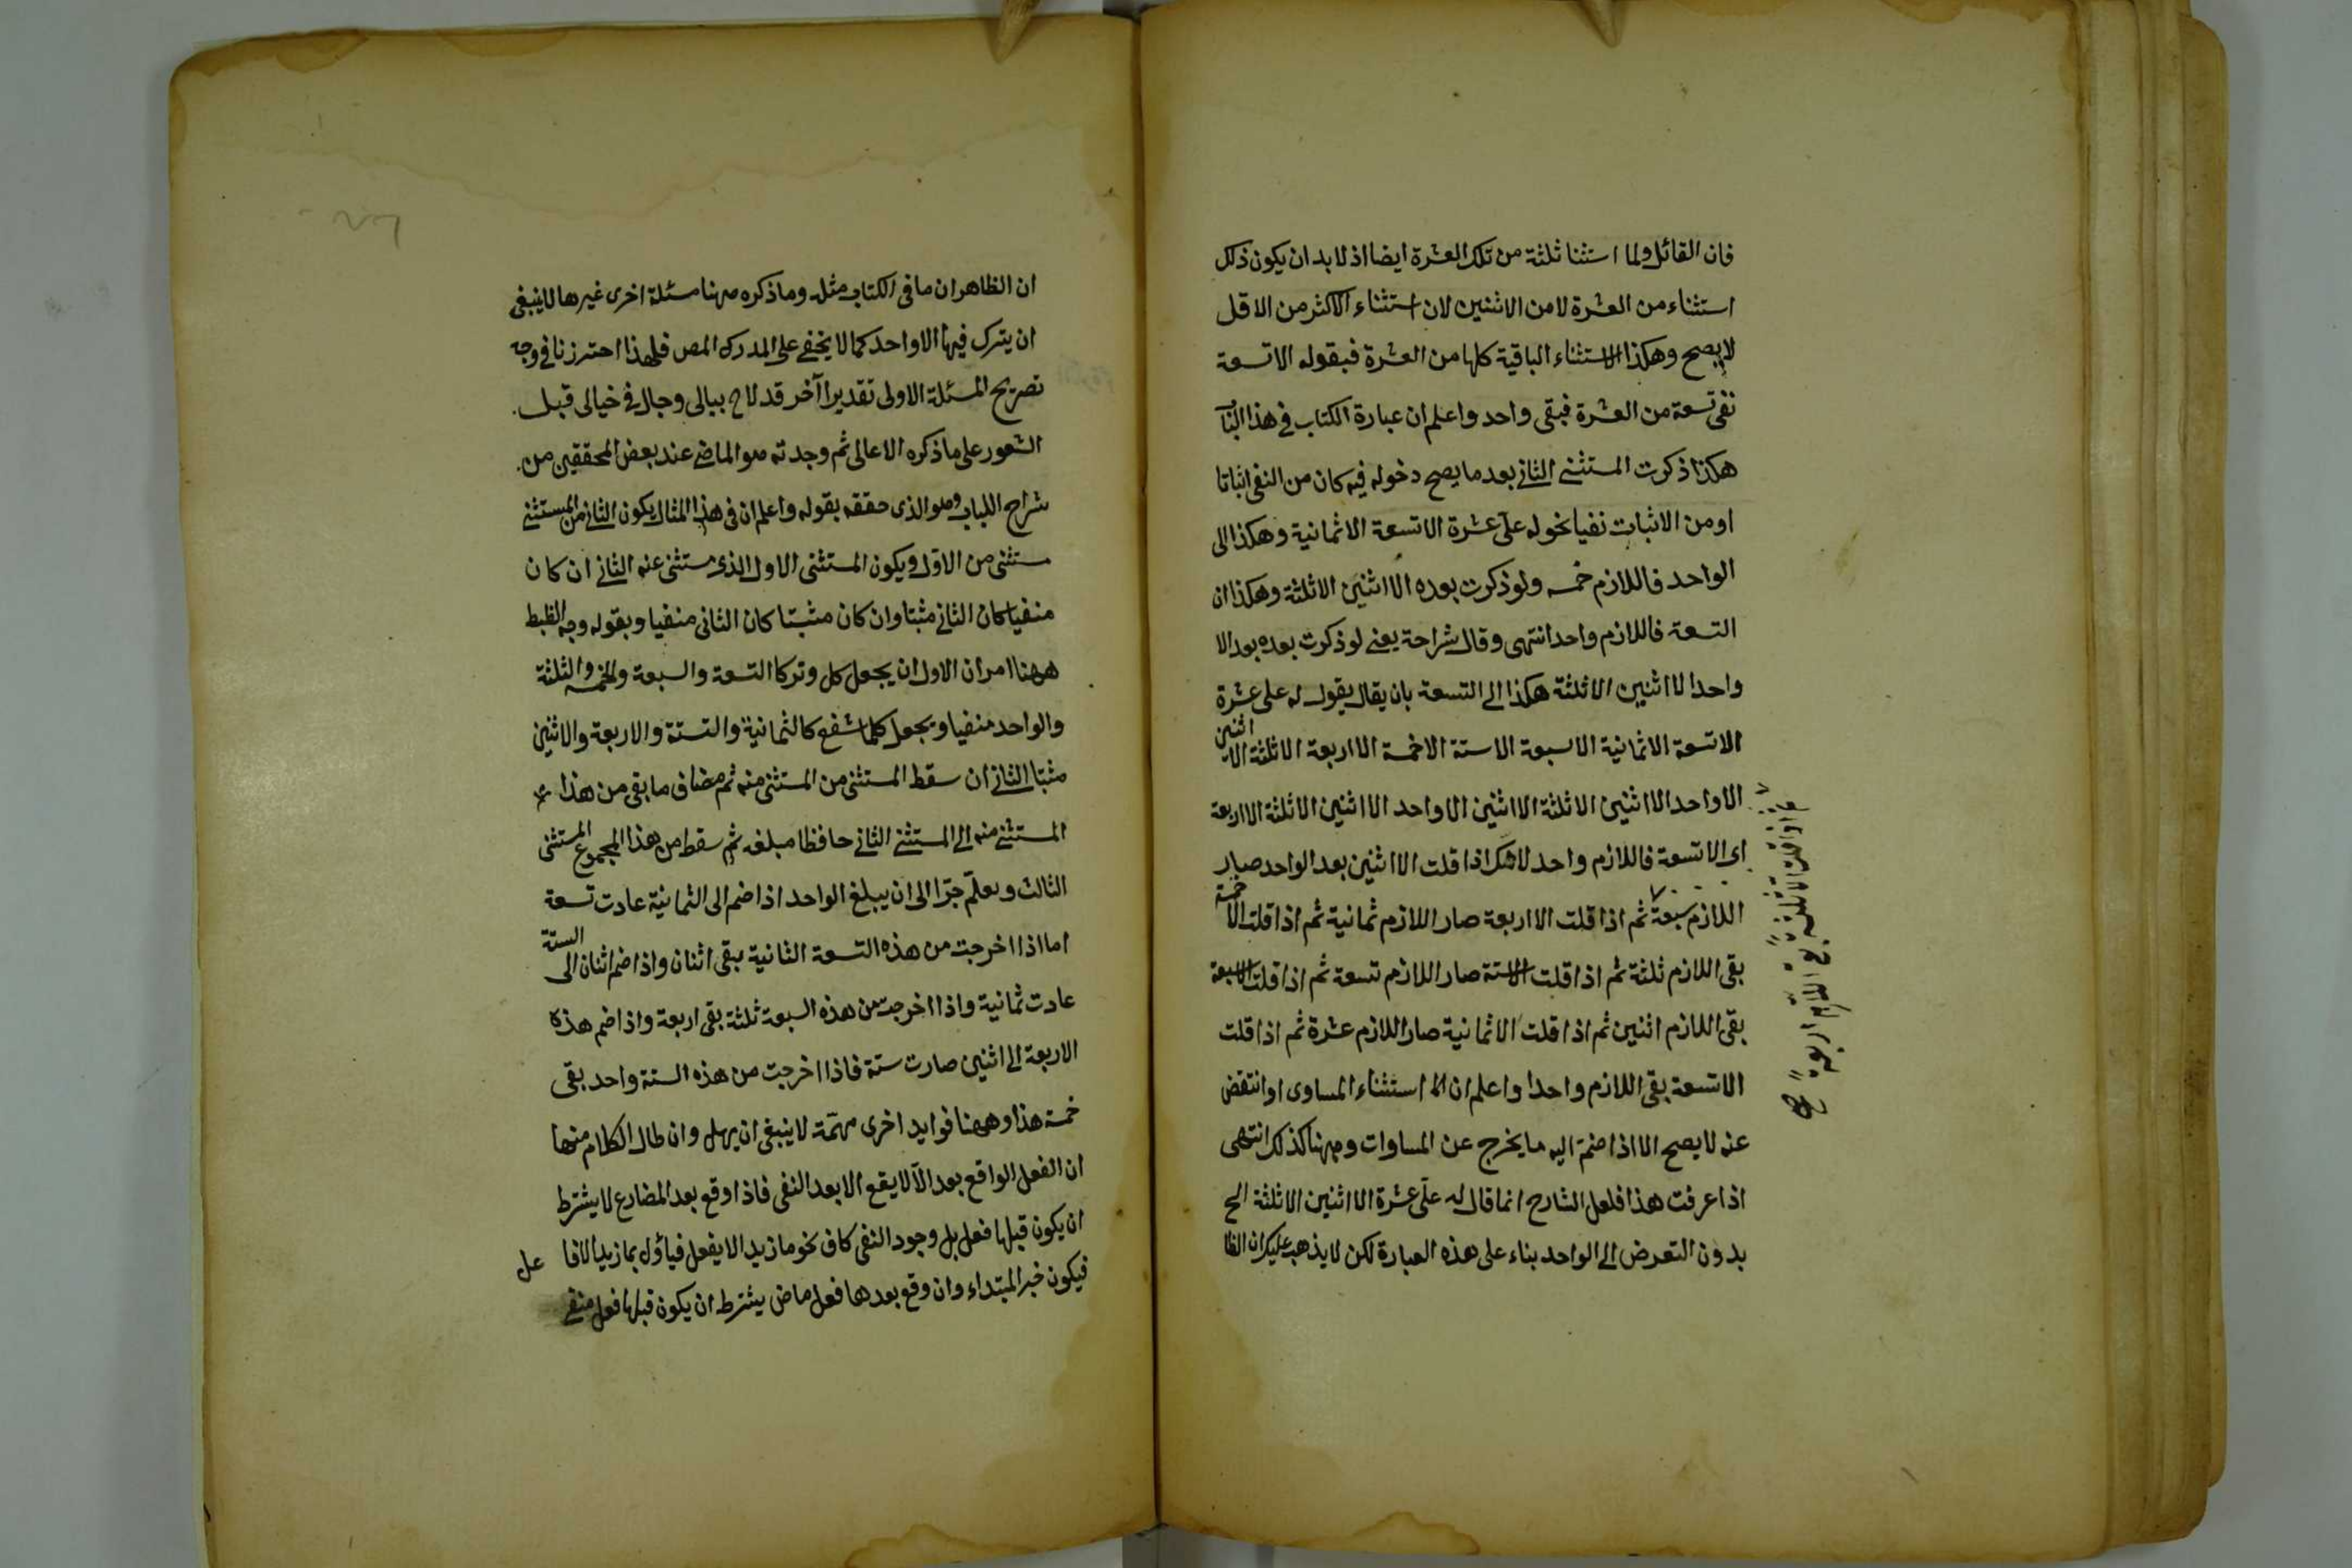 فان القائل ولما استثنا ثلثة من تلك العشرة ايضا اذ لا بد ان يكون ذلك
استثناء من العشرة لا من الاثنين لان استثناء الاكثر من الاقل
لا يصح وهكذا الاستثناء الباقية كلها من العشرة فبقوله الا تسعة
نفى تسعة من العشرة فبقى واحد واعلم ان عبارة الكتاب في هذا الباب
هكذا ذكرت المستثنى الثاني بعد ما يصح دخوله فيه كان من النفى اثباتا
او من الاثبات نفيا نحو له على عشرة الا تسعة الا ثمانية وهكذا الى
الواحد فاللازم خمسه ولو ذكرت بعده الا اثنين الا ثلثة وهكذا ان
التسعة فاللازم واحد انتهى وقال شراحة يعنى لو ذكرت بعده بعد الا
واحد الا اثنين الا ثلثة هكذا الى التسعة بان يقال يقول له على عشرة
الا تسعة الا ثمانية الا سبعة الا ستة الا خمسة الا اربعة الا ثلثة الا اثنين
الا واحد الا اثنين الا ثلثة الا اثنين الا واحد الا اثنين الا ثلثة الا اربعة
اى الا تسعة فاللازم واحد لانك اذا قلت الا اثنين بعد الواحد صار
اللازم سبعة ثم اذا قلت الا اربعة صار اللازم ثمانية ثم اذا قلت الا خمسة
بقى اللازم ثلثة ثم اذا قلت الا ستة صار اللازم تسعة ثم اذا قلت الا سبعة
بقى اللازم اثنين ثم اذا قلت الا ثمانية صار اللازم عشرة ثم اذا قلت
الا تسعة بقى اللازم واحدا واعلم ان الا استثناء المساوى او انتقض
عنه لا يصح الا اذا ضم اليه ما يخرج عن المساوات وههنا كذلك انتهى
اذا عرفت هذا فلعل الشارح انما قال له على عشرة الا اثنين الا ثلثة الخ
بدون التعرض الى الواحد بناء على هذه العبارة لكن لا يذهب عليك ان الظا
ان الظاهر ان ما في الكتاب مثله وما ذكره ههنا مسئلة اخرى غيرها لا ينبغى
ان يترك فيها الا واحد كما لا يخفى على المدرك المص فلهذا احترزنا في وجه
تصريح المسئلة الاولى تقديرا آخر قد لاح ببالى وجال في خيالى قبل
الشعور على ما ذكره الاعالى ثم وجدته هو الماضى عند بعض المحققين من
شراح اللباب وهو الذى حققه بقوله واعلم ان في هذا المثال يكون الثاني من المستثنى
مستثنى من الاول ويكون المستثنى الاول الذى مستثنى عنه الثاني ان كان
منفيا كان الثاني مثبتا وان كان مثبتا كان الثاني منفيا وبقوله وجه الظبط
ههنا امران الاول ان يجعل كل وتر كالتسعة والسبعة والخمسة والثلثة
والواحد منفيا ويجعل كلما شفع كالثمانية والستة والاربعة والاثنين
مثبتا الثاني ان سقط المستثنى من المستثنى منه ثم مضاف ما بقى من هذا
المستثنى منه الى المستثنى الثاني حافظا مبلغه ثم سقط من هذا المجموع المستثنى
الثالث وهلم جرا الى ان يبلغ الواحد اذا ضم الى الثمانية عادت تسعة
اما اذا اخرجت من هذه التسعة الثانية بقى اثنان واذا ضم اثنان الى الستة
عادت ثمانية واذا اخرجت من هذه السبعة ثلثة بقى اربعة واذا ضم هذه
الاربعة الى اثنين صارت ستة فاذا اخرجت من هذه الستة واحد بقى
خمسة هذا وههنا فوايد اخرى مهمة لا ينبغى ان يهمل وان طال الكلام منها
ان الفعل الواقع بعد الا لا يقع الا بعد النفى فاذا وقع بعد المضارع لا يشترط
ان يكون قبلها فعل بل وجود النفى كاف نحو ما زيد الا يفعل فياؤل بما زيد الا فاعل
فيكون خبر المبتداء وان وقع بعدها فعل ماض يشترط ان يكون قبلها فعل منفى